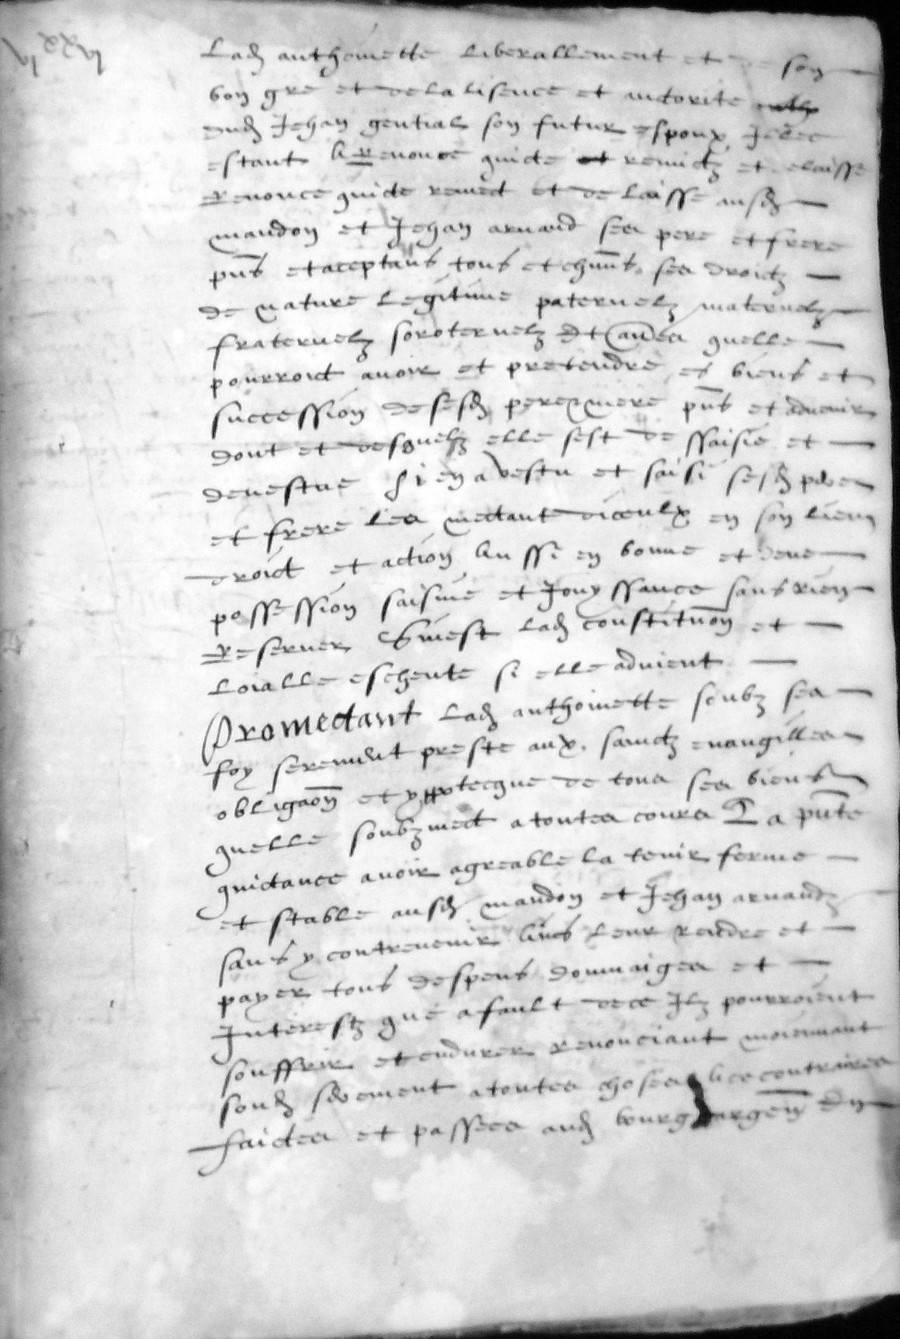 vi xx vi
Lad anthoinette liberallement et de son
bon gre et de la lisence et autorite
dud Jehan gential son futur espoux Illec
estant a Renonce quicte et remictz et delaisse
Renonce quicte remect et de laisse ausd
mandon et Jehan arnaud ses pere et frere
pns et aceptans tous et chuns ses droictz
de nature legitime paternelz maternelz
fraternelz soroternelz et aues quelle
pourroict auoir et pretendre es biens et
succession de sesd pere et mere pns et aduenir
dont et desquelz elle sest de ssaisie et
deuestue Et en a vestu et saisi sesd pere
et frere les mectant diceulx en son lieu
droict et action Aussi en bonne et deue
possession saisine et Jouyssance sans rien
Reseruer Sinest lad constituon et
loialle escheute si elle aduient
Promectant lad anthoinette soubz ses
foy serement preste aux sainctz euangilles
obligaon et yppotecque de tous ses biens
quelle soubzmect a toutes cours La pnte
quictance auoir agreable la tenir ferme
et stable ausd mandon et Jehan arnaudz
sans y contreuenir Ains leur rendre et
payer tous despens dommaiges et
Interestz que a fault de ce Ilz pourroient
souffrir et endurer renonciant moiennant
sond serement a toutes choses a ce contraires
faictes et passees aud bourg argen en